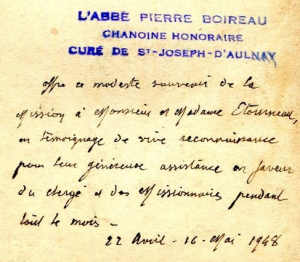 L'ABBÉ PIERRE BOIREAU
CHANOINE HONORAIRE
CURÉ DE ST-JOSEPH-D'AULNAY
offre ce modeste souvenir de la
Mission à Monsieur et Madame Etourneau,
en témoignage de vive reconnaissance
pour leur généreuse assistance en faveur
du clergé et des Missionnaires pendant
tout le mois -
22 Avril - 16 - Mai 1948